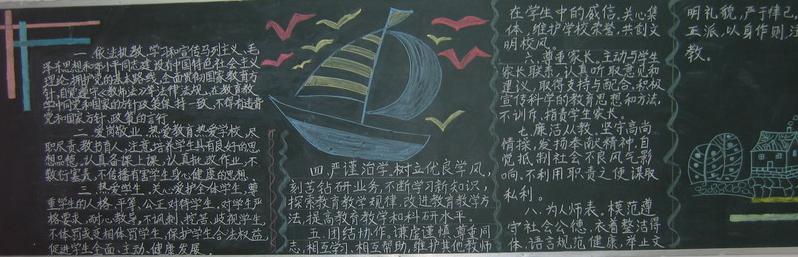 一、依法执教。学习和宣传马列主义、毛
泽东思想和邓小平同志建设有中国特色社会主义
理论,拥护党的基本路线,全面贯彻国家教育方
针,自觉遵守《教师法》等法律法规,在教育教
学中同党和国家的方针政策保持一致,不得有违背
党和国家方针、政策的言行。
二、爱岗敬业。热爱教育热爱学校,尽
职尽责,教书育人,注意培养学生具有良好的思
想品德。认真备课上课,认真批改作业,不
敷衍塞责,不传播有害学生身心健康的思想。
三、热爱学生。关心爱护全体学生,尊
重学生的人格,平等、公正对待学生。对学生严
格要求,耐心教导,不讽刺、挖苦、歧视学生,
不体罚或变相体罚学生,保护学生合法权益,
促进学生全面、主动、健康发展。
四、严谨治学。树立优良学风,
刻苦钻研业务,不断学习新知识,
探索教育教学规律,改进教育教学方
法,提高教育教学和科研水平。
五、团结协作。谦虚谨慎、尊重同
志,相互学习、相互帮助,维护其他教师
在学生中的威信。关心集
体,维护学校荣誉,共创文
明校风。
六、尊重家长。主动与学生
家长联系,认真听取意见和
建议,取得支持与配合。积极
宣传科学的教育思想和方法,
不训斥、指责学生家长。
七、廉洁从教。坚守高尚
情操,发扬奉献精神,自
觉抵制社会不良风气影
响。不利用职责之便谋取
私利。
八、为人师表。模范遵
守社会公德,衣着整洁得
体,语言规范健康,举止文
明礼貌,严于律己,
正派,以身作则,注
教。